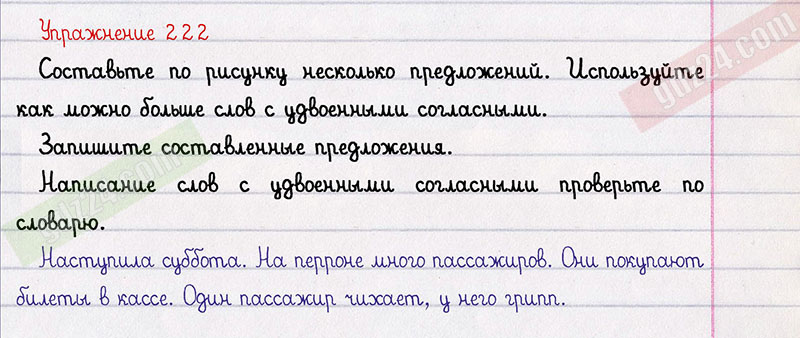 Упражнение 222
Составьте по рисунку несколько предложений. Используйте
как можно больше слов с удвоенными согласными.
Запишите составленные предложения.
Написание слов с удвоенными согласными проверьте по
словарю.
Наступила суббота. На перроне много пассажиров. Они покупают
билеты в кассе. Один пассажир чихает, у него грипп.
gdz24.com
gdz24.com